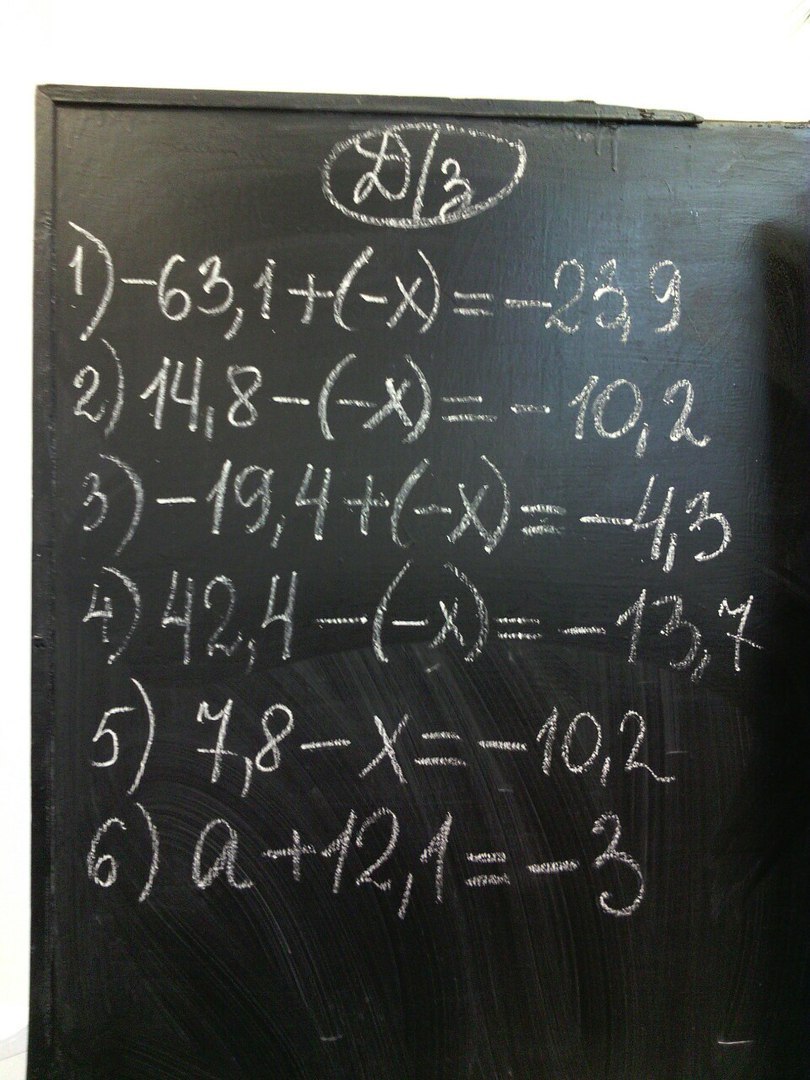 Д/з
1) -63,1+(-x)=-23,9
2) 14,8-(-x)=-10,2
3) -19,4+(-x)=-4,3
4) 42,4-(-x)=-13,7
5) 7,8-x=-10,2
6) a+12,1=-3